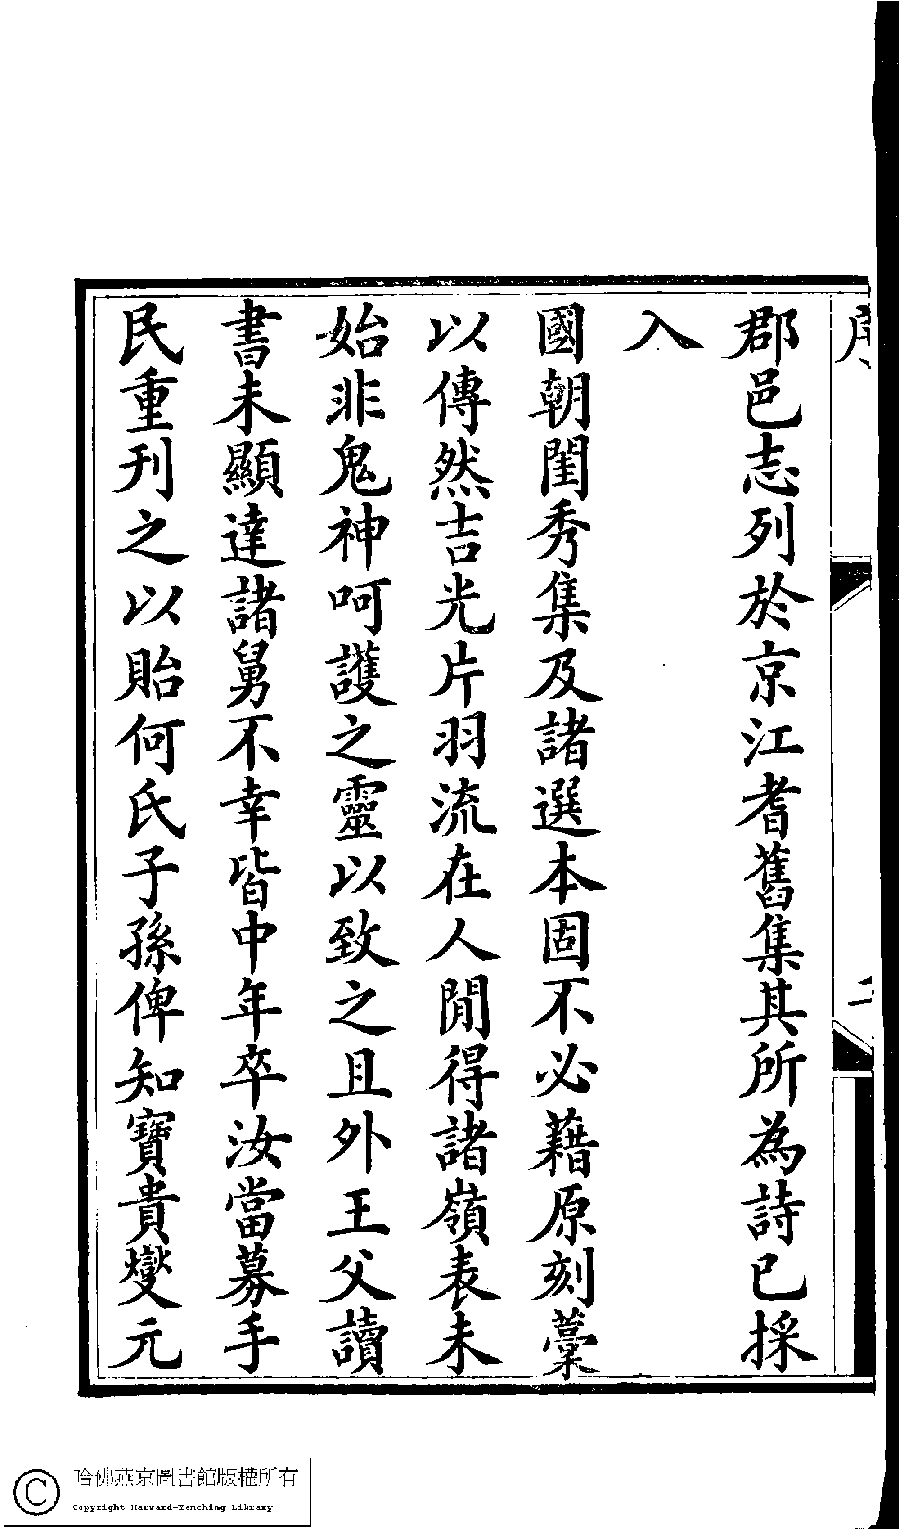 郡邑志列於京江耆舊集其所為詩已採
入
國朝閨秀集及諸選本固不必藉原刻藁
以傳然吉光片羽流在人閒得諸嶺表未
始非鬼神呵護之靈以致之且外王父讀
書未顯達諸舅不幸皆中年卒汝當募手
民重刊之以貽何氏子孫俾知寶貴燮元
哈佛燕京圖書館版權所有
Copyright Harvard-Yenching Library